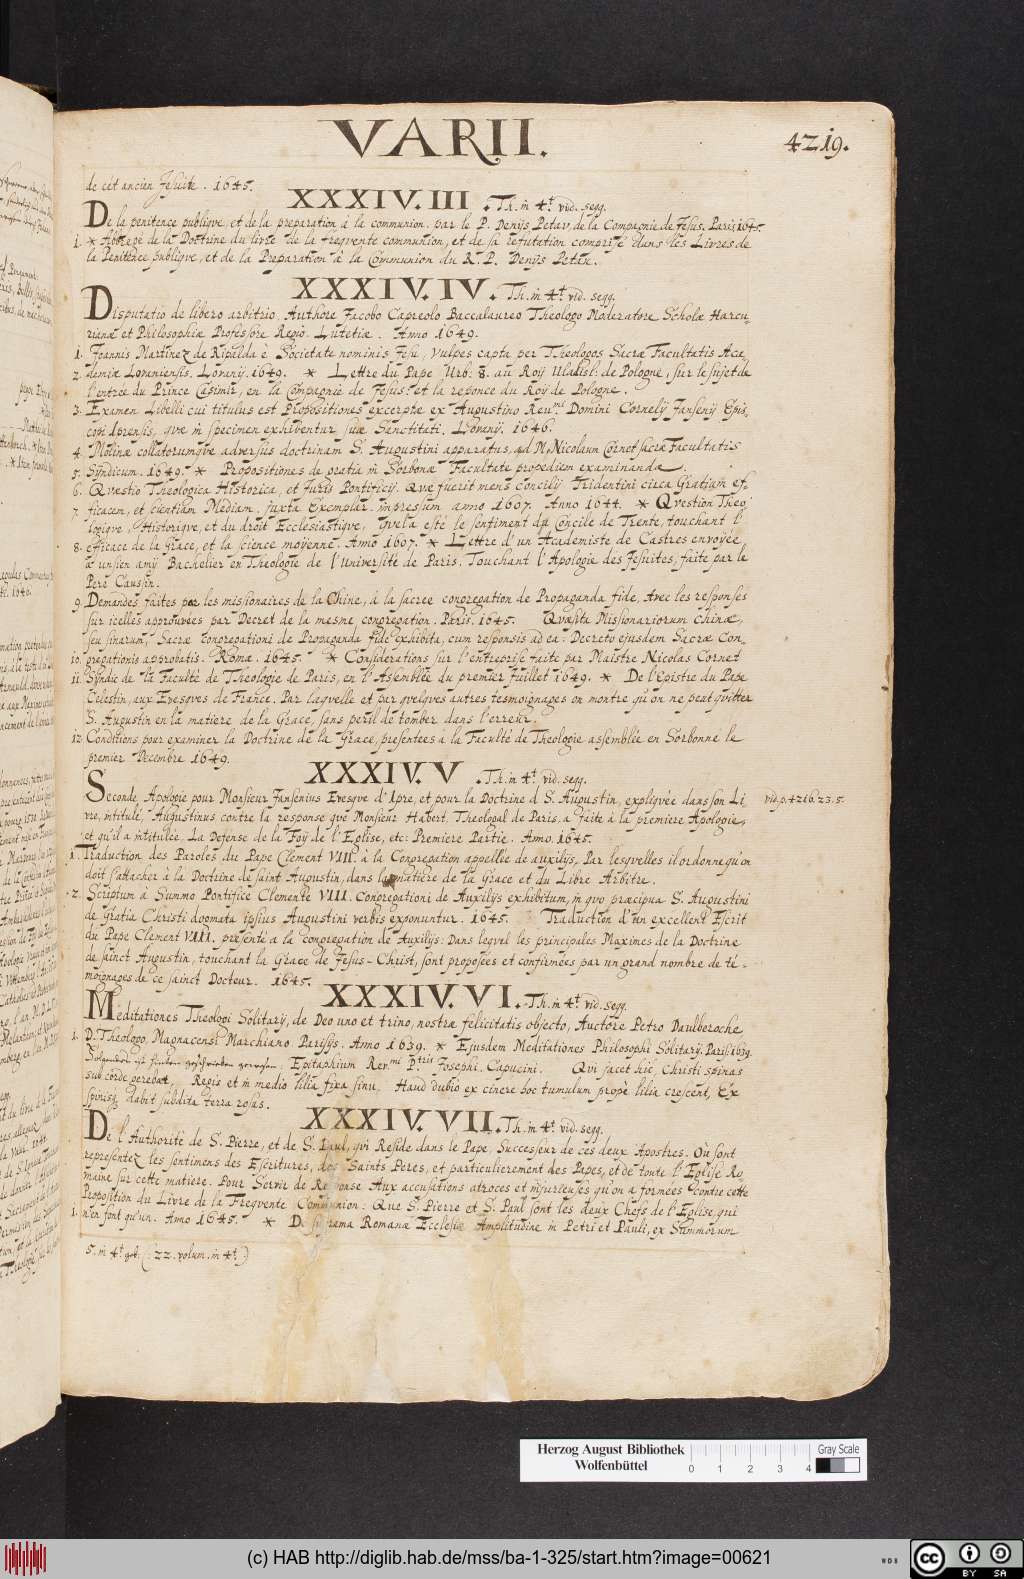 VARII.
4219.
de cét ancien Jesuite. 1645.
XXXIV. III. Th. in 4t. vid. segg.
De la penitence publique, et de la preparation à la communion. par le P. Denijs Petav, de la Compagnie de Jesus. Paris 1645.
1. * Abbregé de la Doctrine du livre de la freqvente communion, et de sa refutation comprise dans les Livres de
la Penitence publiqve, et de la Preparation à la Communion du R. P. Denijs Petau.
XXXIV. IV. Th. in 4t. vid. segg.
Disputatio de libero arbitrio. Authore Jacobo Capreolo Baccalaureo Theologo Moderatore Scholæ Harcu-
rianæ et Philosophiæ Professore Regio. Lutetiæ. Anno 1649.
1. Joannis Martinez de Ripalda è Societate nominis Jesu, Vulpes capta per Theologos Sacræ Facultatis Aca-
2. demiæ Lovaniensis. Lovanij. 1649. * Lettre du Pape Urb. 8. au Roij Uladisl: de Pologne, sur le sujet de
l'entrée du Prince Casimir, en la Compagnie de Jesus: et la reponce du Roy de Pologne.
3. Examen Libelli cui titulus est Propositiones excerptæ ex Augustino Reu.mi Domini Cornelij Jansenij Epis.
copi Iprensis, qvæ in specimen exhibentur suæ Sanctitati. Lovanij. 1646.
4. Molinæ collatorumqve adversus doctrinam S. Augustini apparatus, ad M. Nicolaum Cornet sacræ Facultatis
5. Syndicum. 1649. * Propositiones de gratia in Sorbonæ Facultate propediem examinandæ.
6. Qvæstio Theologica Historica, et Juris Pontificij. Qvæ fuerit mens Concilij Tridentini circa Gratiam ef-
7. ficacem, et scientiam Mediam. juxta Exemplar. impressum anno 1607. Anno 1644. * Qvestion Theo-
logiqve, Historiqve, et du droit Ecclesiastiqve, qvel a esté le sentiment du Concile de Trente, touchant l'
8. efficace de la Grace, et la science moyenne. Anno 1607. * Lettre d'un Academiste de Castres envoyée
à un sien amy Bachelier en Theologie de l'Université de Paris. Touchant l'Apologie des Jesuites, faite par le
Pere Caussin.
9. Demandes faites par les missionaires de la Chine, à la sacree congregation de Propaganda fide, Avec les responses
sur icelles approuvees par Decret de la mesme congregation. Paris. 1645. Qvæsita Missionariorum Chinæ,
seu sinarum, Sacræ congregationi de Propaganda fide exhibita, cum responsis ad ea: Decreto ejusdem Sacræ Con-
10. gregationis approbatis. Romæ. 1645. * Considerations sur l'entreprise faite par Maistre Nicolas Cornet
11. Syndic de la Faculté de Theologie de Paris, en l'Assemblée du premier Juillet 1649. * De l'Epistre du Pape
Celestin, aux Evesqves de France. Par laqvelle et par qvelqves autres tesmoignages on montre qu'on ne peut qvitter
S. Augustin en la matiere de la Grace, sans peril de tomber dans l'erreur.
12. Conditions pour examiner la Doctrine de la Grace, presentees à la Faculté de Theologie assemblée en Sorbonne le
premier Decembre 1649.
XXXIV. V. Th. in 4t. vid. segg.
Seconde Apologie pour Monsieur Jansenius Evesqve d'Ipre, et pour la Doctrine d S. Augustin, expliqvée dans son Li- vid. p. 4216. 23. 5.
vre, intitulé, Augustinus contre la response qve Monsieur Habert. Theologal de Paris. a faite à la premiere Apologie,
et qu'il a intitulée. La Defense de la Foy de l'Eglise, etc: Premiere Partie. Anno. 1645.
1. Traduction des Paroles du Pape Clement VIII. à la Congregation appellée de auxilijs, Par lesqvelles il ordonne qu'on
doit s'attacher à la Doctrine de saint Augustin, dans la matiere de la Grace et du Libre Arbitre.
2. Scriptum à Summo Pontifice Clemente VIII. Congregationi de Auxilijs exhibitum, in qvo præcipua S. Augustini
de Gratia Christi dogmata ipsius Augustini verbis exponuntur. 1645. Traduction d'un excellent Escrit
du Pape Clement VIII. presenté a la congregation de Auxilijs. Dans leqvel les principales Maximes de la Doctrine
de sainct Augustin, touchant la Grace de Jesus-Christ, sont proposees et confirmées par un grand nombre de tes-
moignages de ce sainct Docteur. 1645.
XXXIV. VI. Th. in 4t. vid. segg.
Meditationes Theologi Solitarij, de Deo uno et trino, nostræ felicitatis objecto, Auctore Petro Daulberoche
1. D. Theologo, Magnacensi Marchiano. Parisijs. Anno 1639. * Ejusdem Meditationes Philosophi Solitarij. Paris. 1639.
Epitaphium Rev.mi P.tris Josephi, Capucini. Qvi jacet hic, Christi spinas
sub corde gerebat, Regis et in medio lilia fixa sinu. Haud dubio ex cinere hoc tumulum propè lilia crescent, Ex
spinisq dabit subdita terra rosas.
XXXIV. VII. Th. in 4t. vid. segg.
De l'Authorité de S. Pierre, et de S. Paul, qvi Reside dans le Pape, Successeur de ces deux Apostres. Où sont
representez les sentimens des Escritures, des Saints Peres, et particulierement des Papes, et de toute l'Eglise Ro-
maine sur cette matiere. Pour Servir de Response Aux accusations atroces et injurieuses qu'on a formees contre cette
Proposition du Livre de la Freqvente Communion: Que S. Pierre et S. Paul sont les deux Chefs de l'Eglise qui
1. n'en font qu'un. Anno 1645. * De suprema Romanæ Ecclesiæ Amplitudine in Petri et Pauli, ex Summorum
5. in 4t. (22. volum. in 4t.)
Herzog August Bibliothek
Wolfenbüttel
0 1 2 3 4
Gray Scale
(c) HAB http://diglib.hab.de/mss/ba-1-325/start.htm?image=00621
WDB
cc BY SA